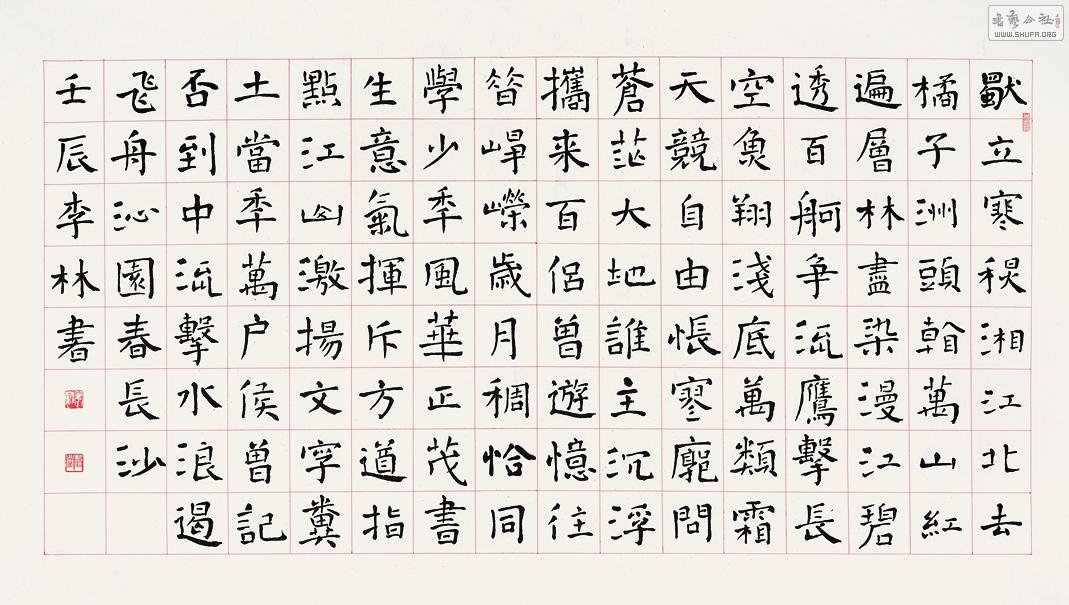 獨立寒秋湘江北去
橘子洲頭看萬山紅
遍層林盡染漫江碧
透百舸争流鷹擊長
空魚翔淺底萬類霜
天競自由悵寥廓問
蒼茫大地誰主沉浮
攜来百侶曾遊憶往
昔崢嶸歲月稠恰同
學少年風華正茂書
生意氣揮斥方遒指
點江山激揚文字糞
土當年萬户侯曾記
否到中流擊水浪遏
飛舟沁園春長沙
壬辰李林書
書藝公社
WWW.SHUFA.ORG